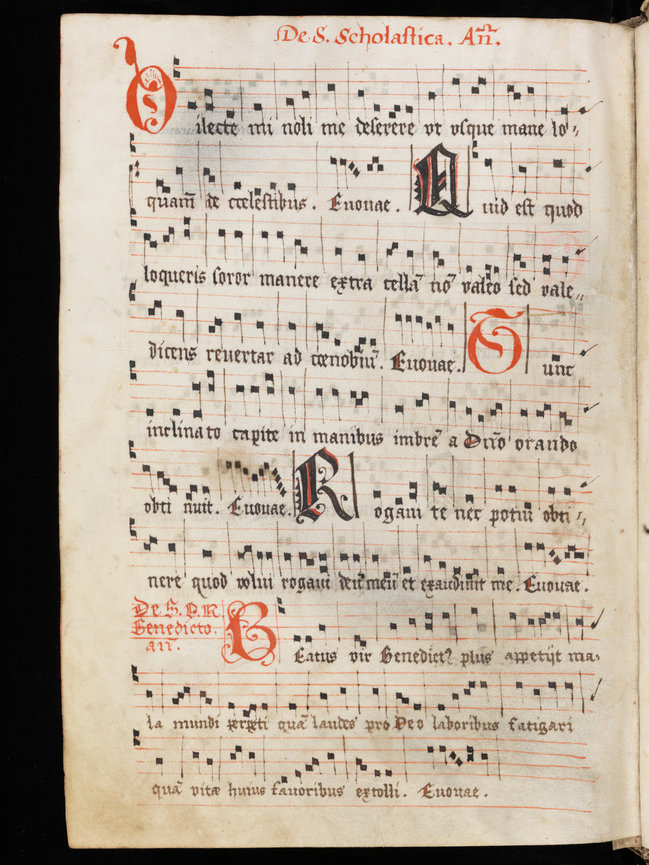 De S. Scholastica. Añ.
Dilecte mi noli me deserere vt vsque mane lo-,
quam̃ de cœlestibus. Euouae. Quid est quod
loqueris soror manere extra cellã nõ valeo sed vale-,,
dicens reuertar ad cœnobiũ. Euouae. Tunc
inclinato capite in manibus imbrẽ a Dño orando
obti nuit. Euouae. Rogaui te nec potui obti-,,
nere quod volui rogaui deũ meũ et exaudiuit me. Euouae.
De S. P. N.
Benedicto.
añ.
Beatus vir Benedictꝰ plus appetijt ma-
la mundi perpeti quã laudes pro Deo laboribus fatigari
quã vitæ huius fauoribus extolli. Euouae.